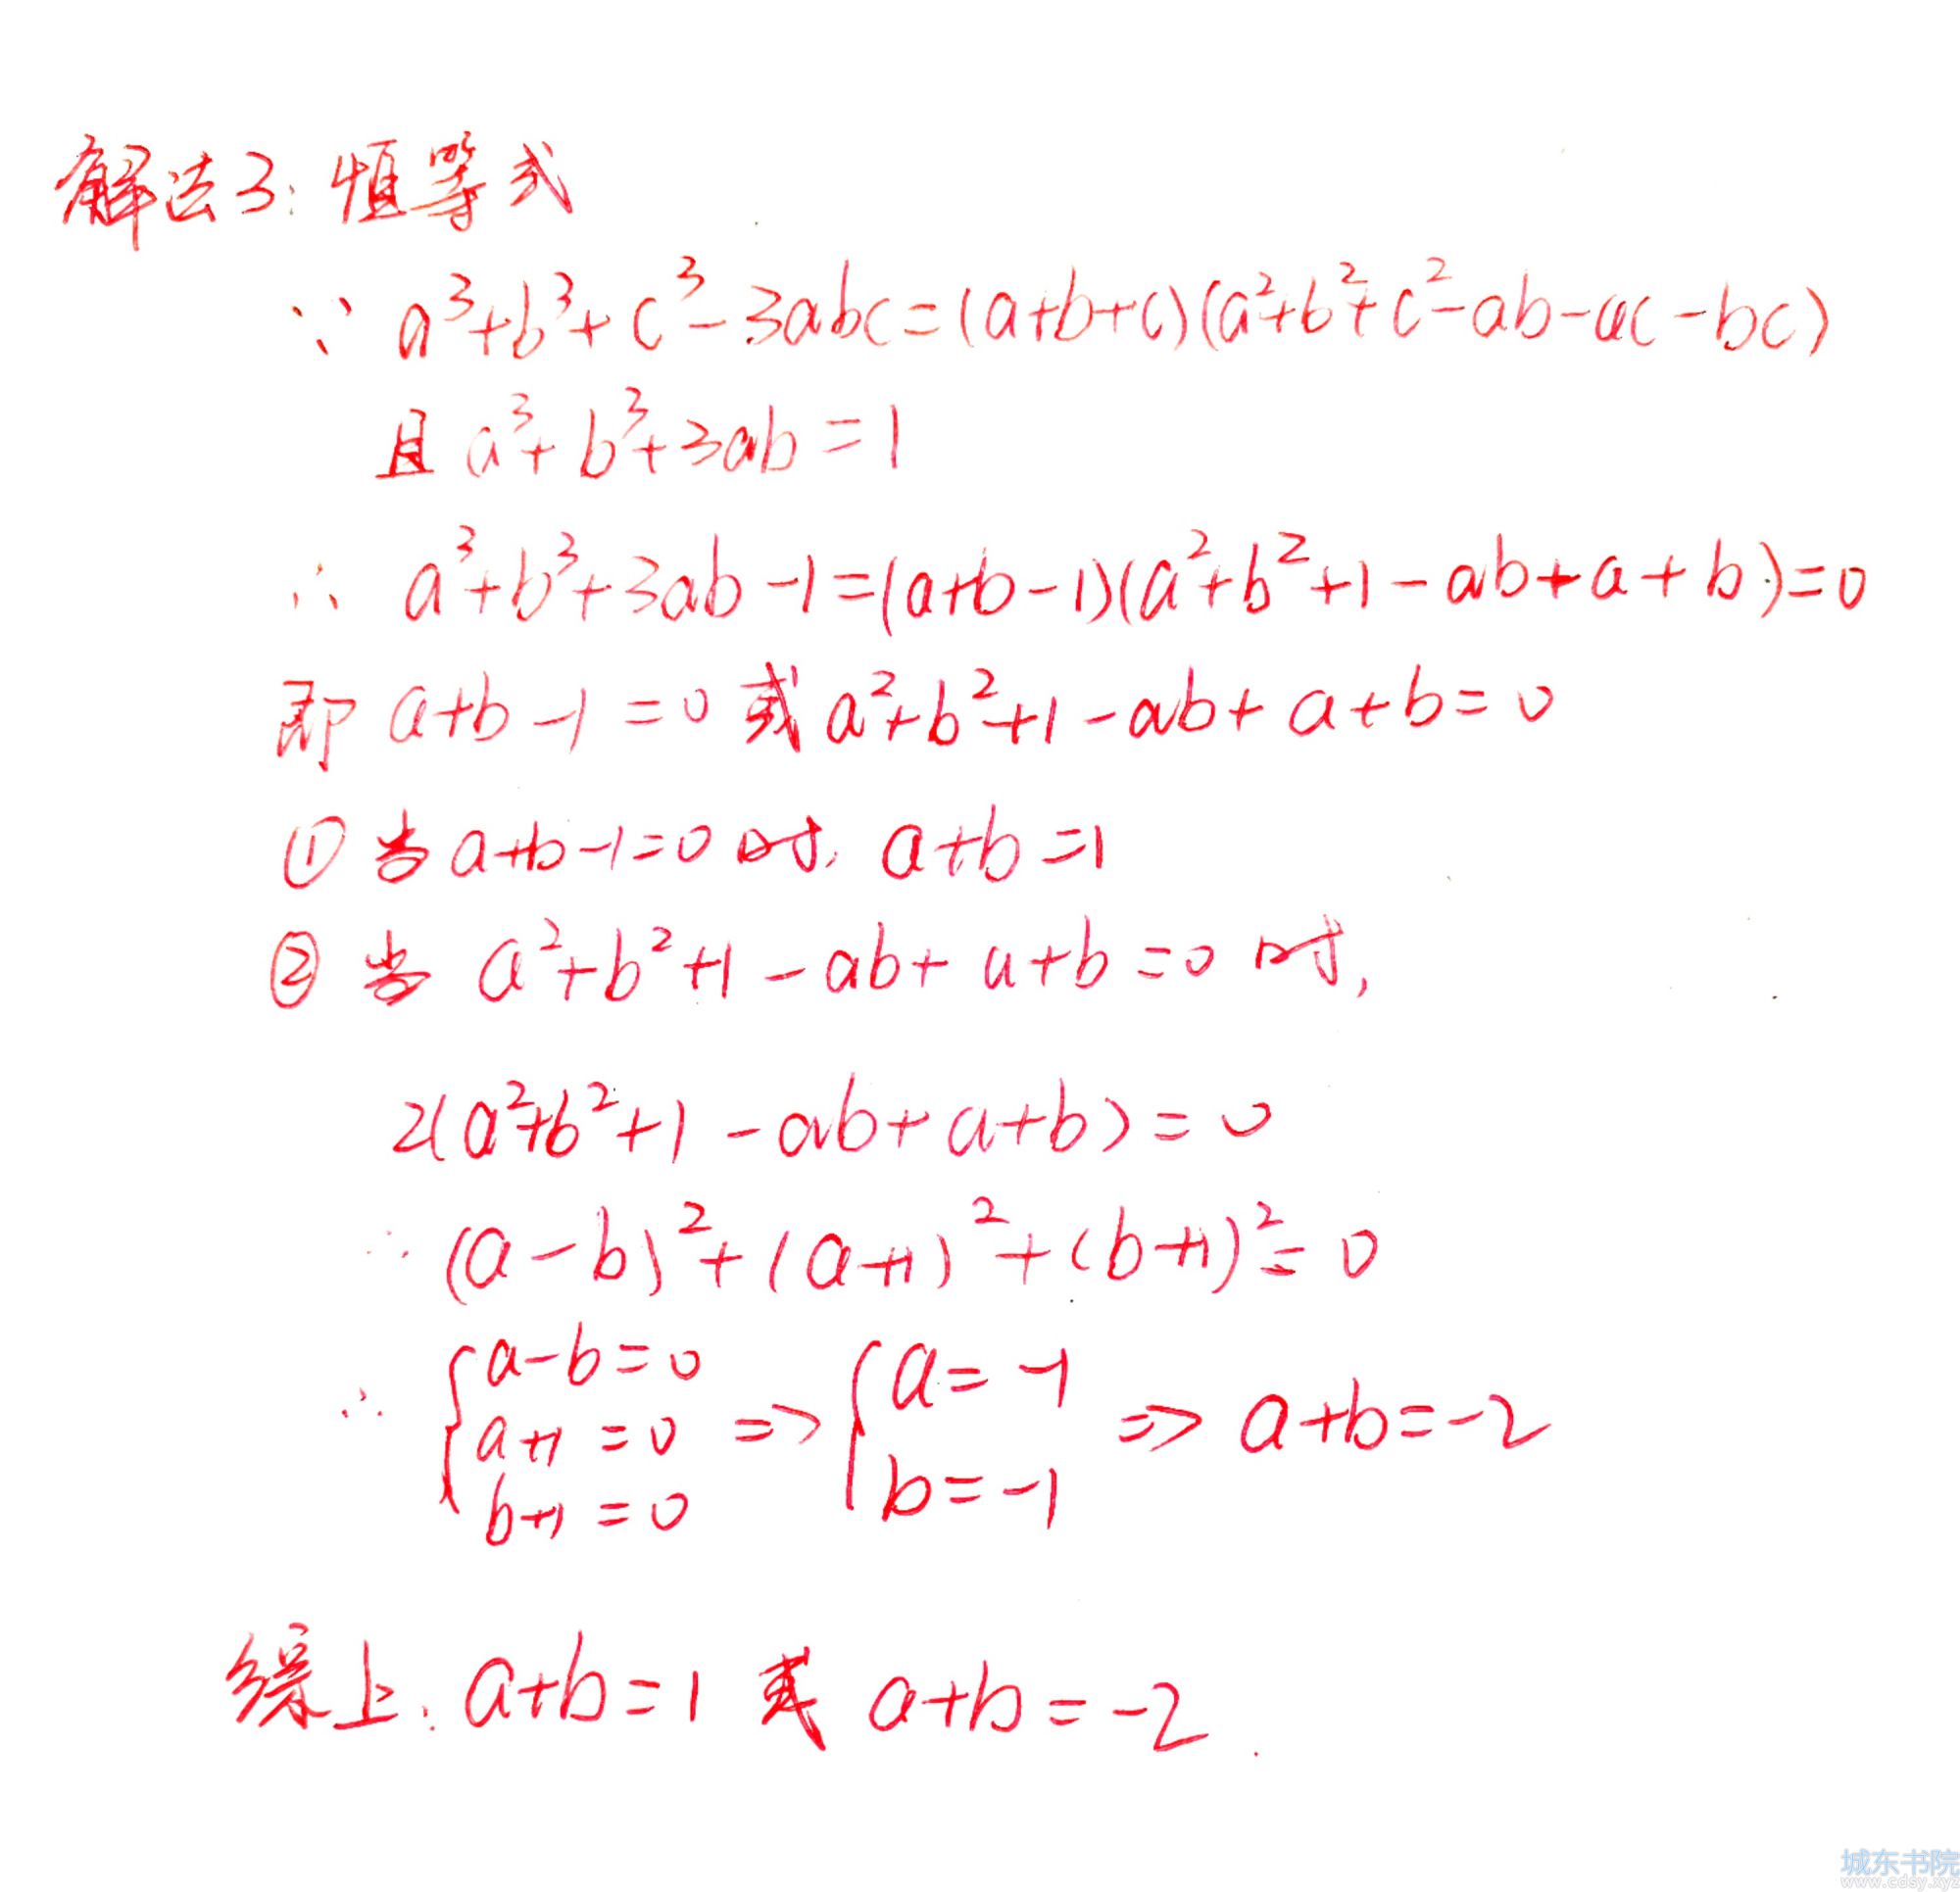 解法3: 恒等式
∵ a³+b³+c³-3abc=(a+b+c)(a²+b²+c²-ab-ac-bc)
且 a³+b³+3ab=1
∴ a³+b³+3ab-1=(a+b-1)(a²+b²+1-ab+a+b)=0
即 a+b-1=0 或 a²+b²+1-ab+a+b=0
① 当 a+b-1=0 时, a+b=1
② 当 a²+b²+1-ab+a+b=0 时,
2(a²+b²+1-ab+a+b)=0
∴ (a-b)²+(a+1)²+(b+1)²=0
∴ { a-b=0
a+1=0
b+1=0 => { a=-1
b=-1 => a+b=-2
综上: a+b=1 或 a+b=-2.
城东书院
www.cdsy.xyz